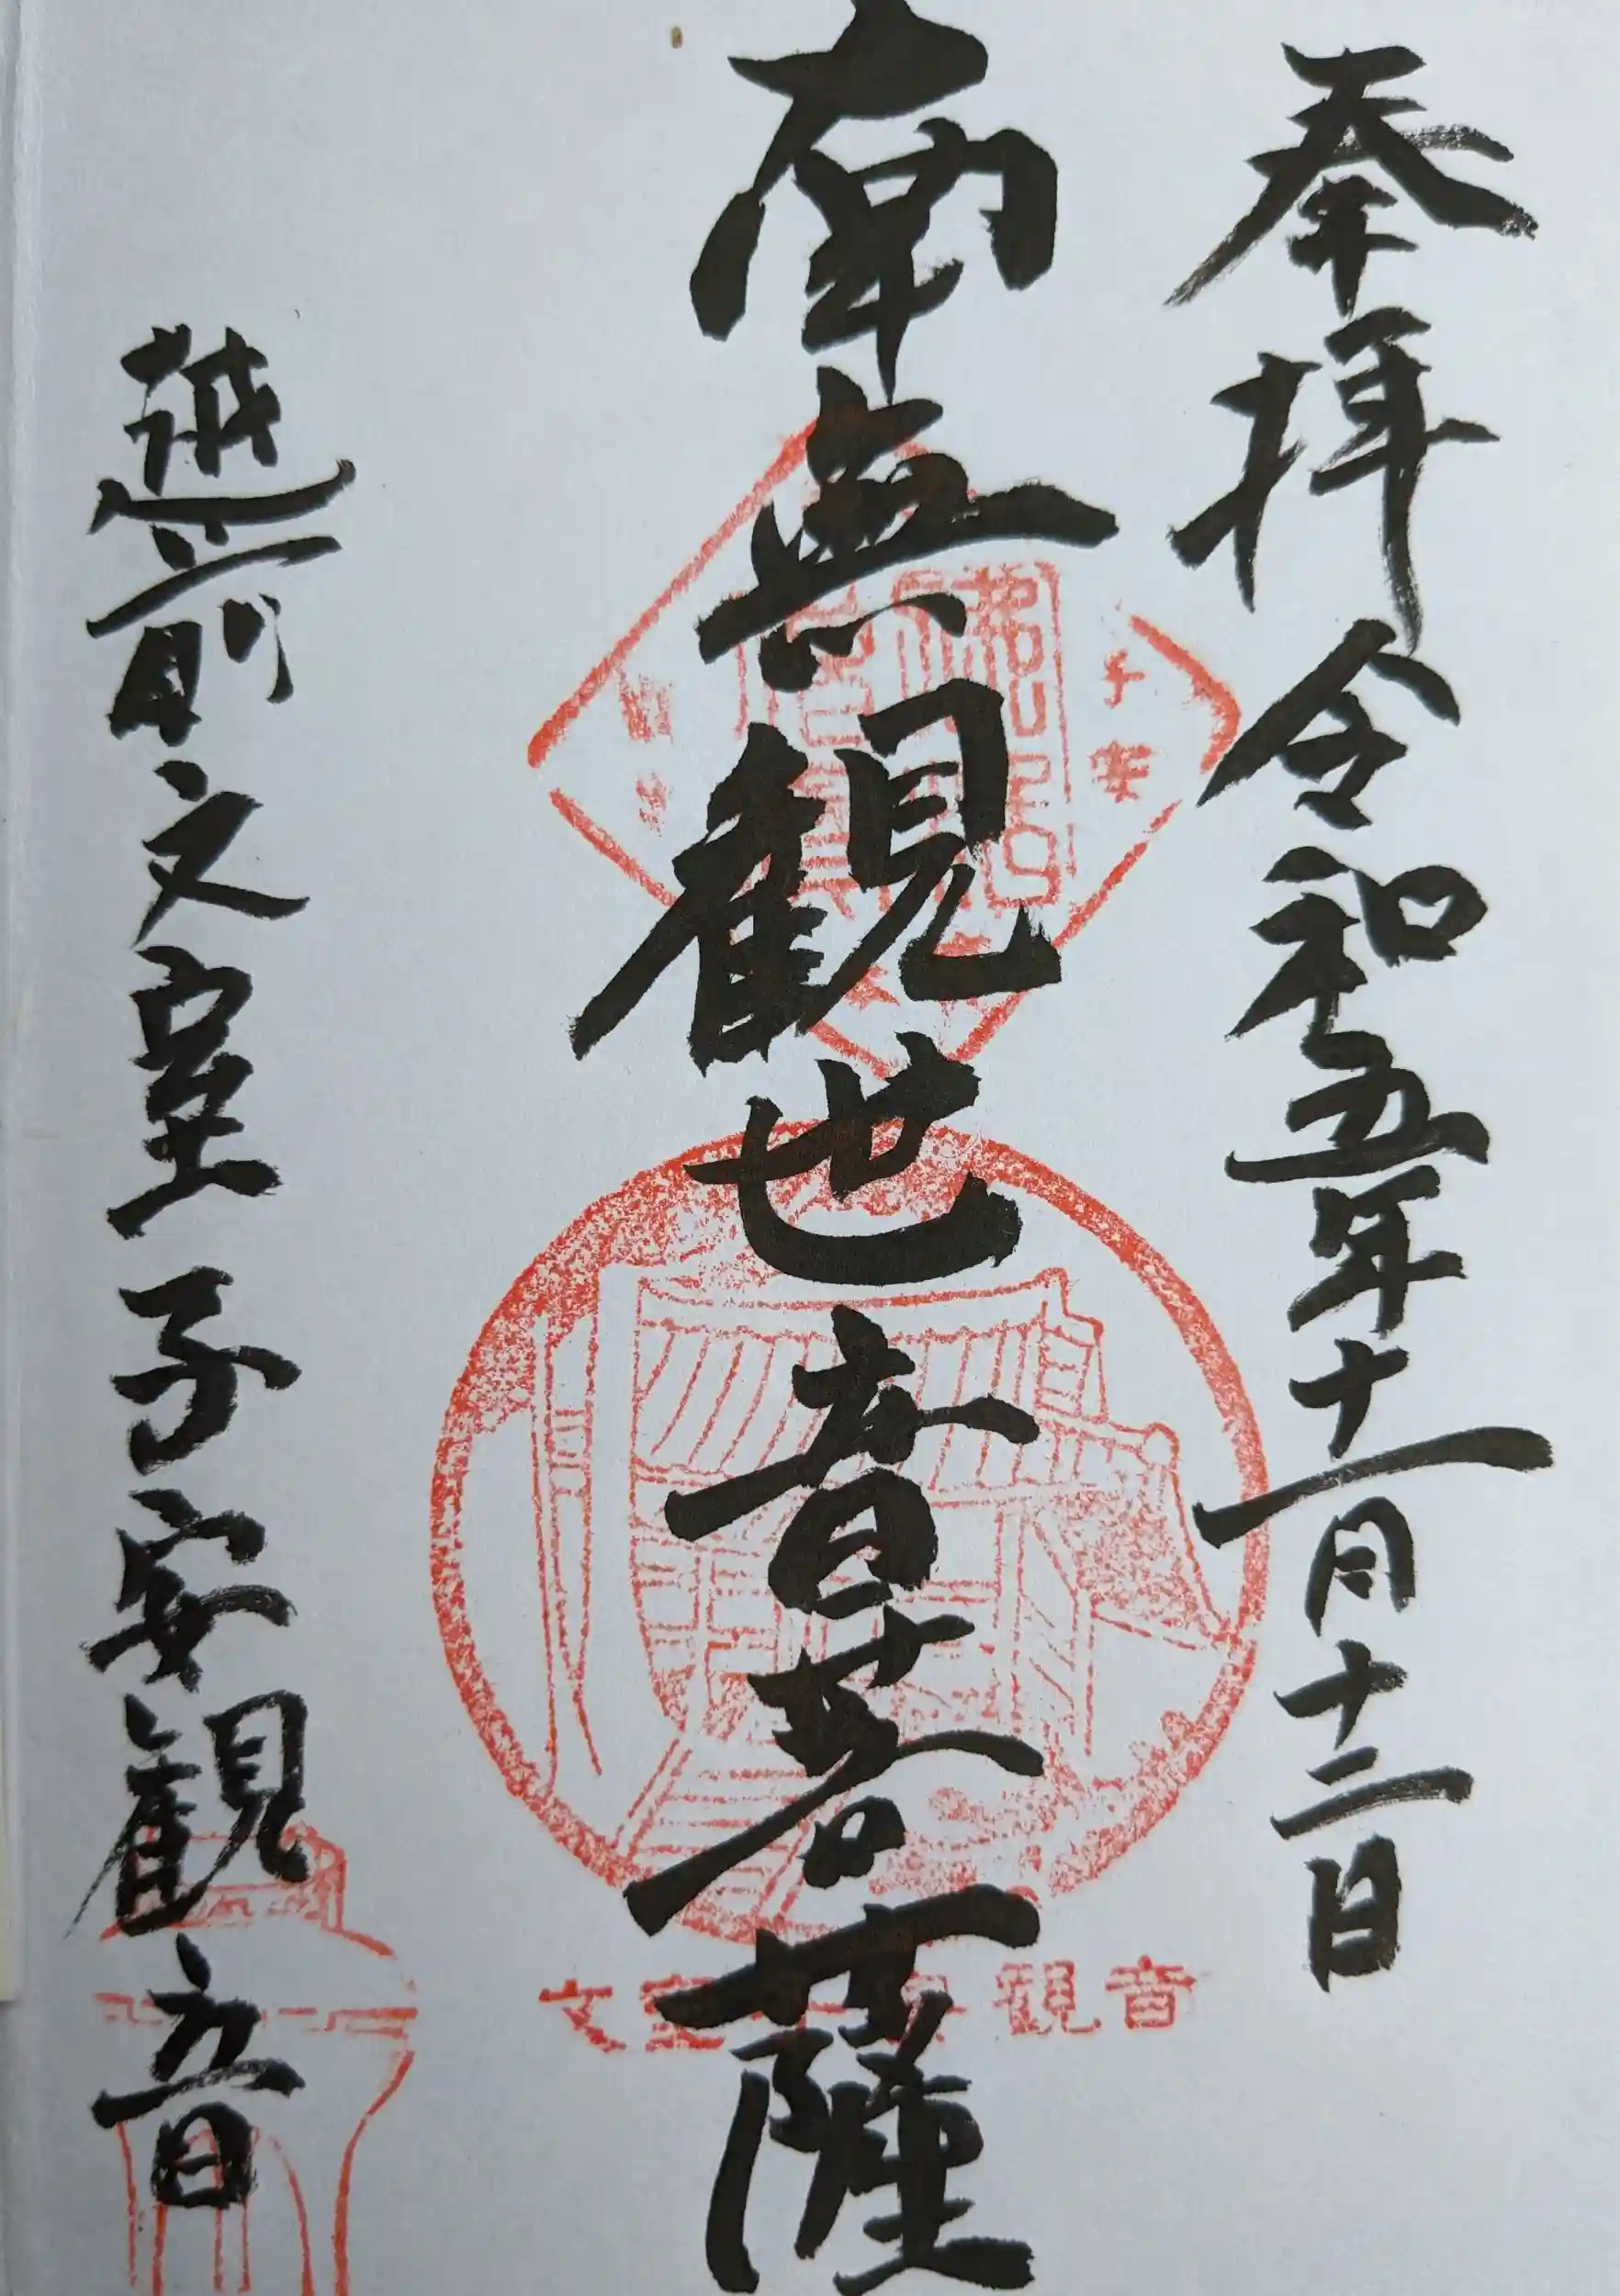 奉拝 令和五年十一月十二日
南無観世音菩薩
越前文室 子安観音
子安
文室子安観音